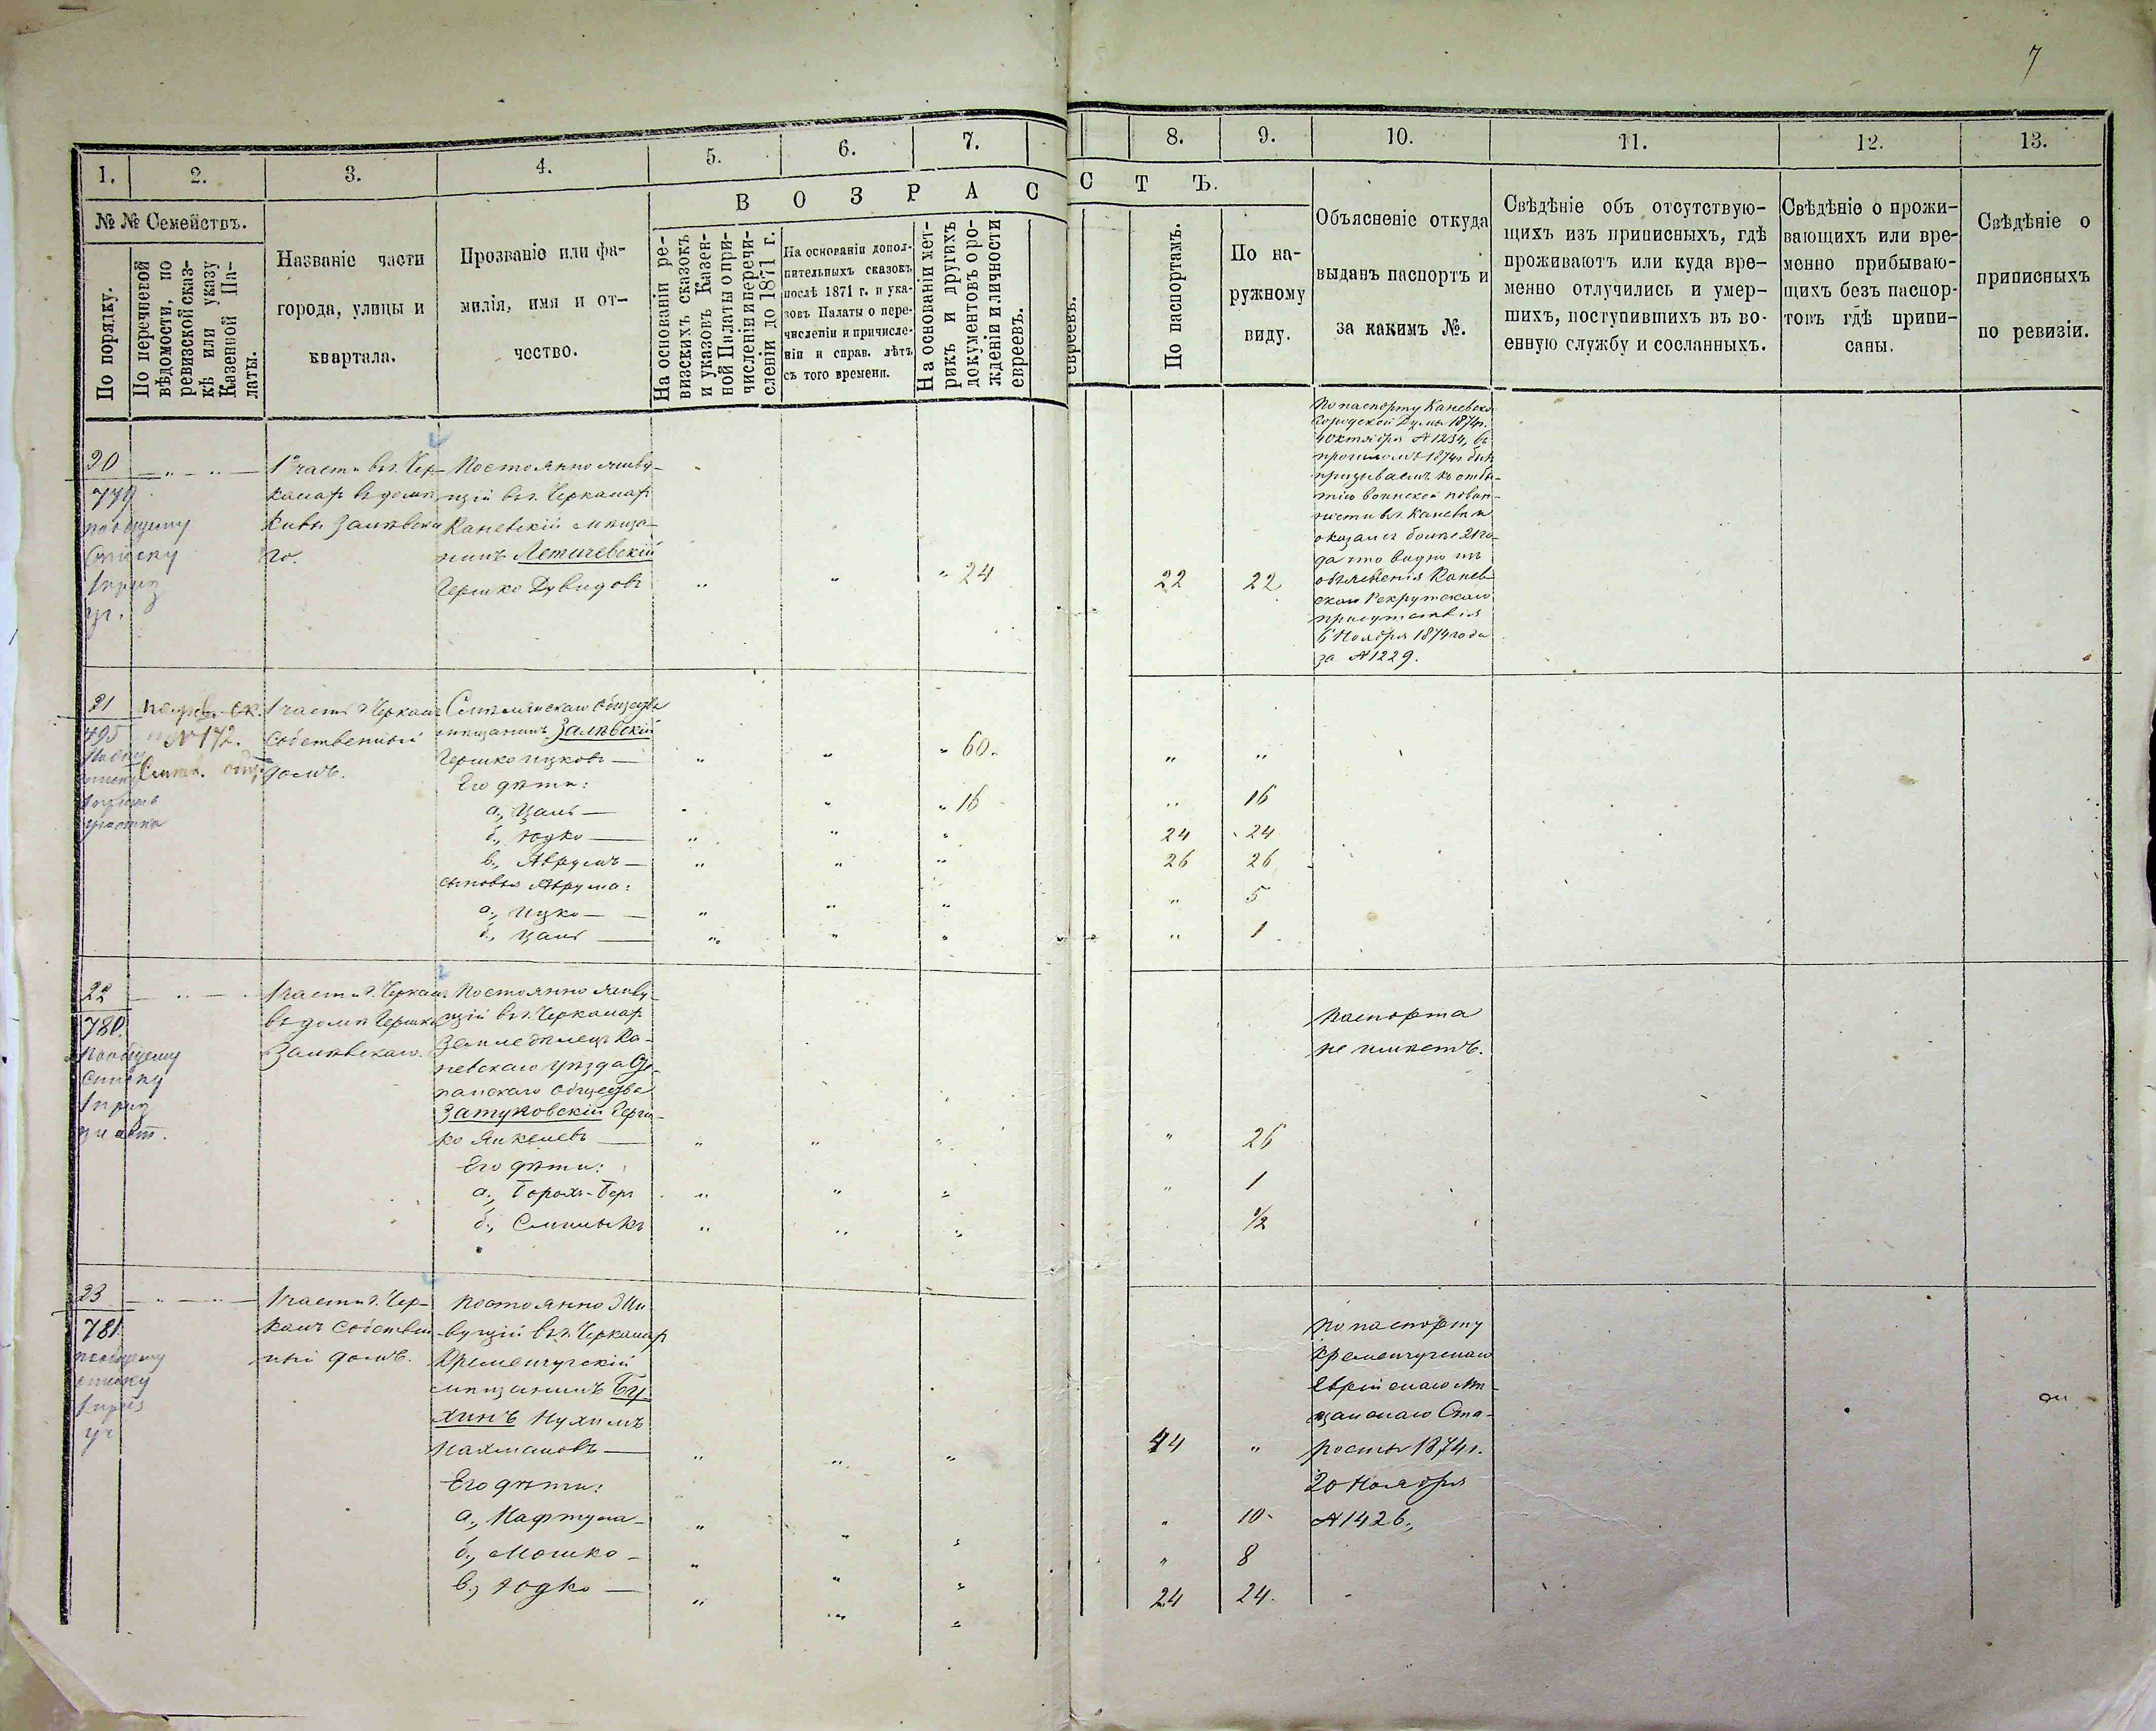 7
1. 2. 3. 4. 5. 6. 7. 8. 9. 10. 11. 12. 13.
В О З Р А С С Т Ъ.
№№ Семействъ.
По порядку.
По перечневой
вѣдомости, по
ревизской сказ-
кѣ или указу
Казенной Па-
латы.
Названіе части
города, улицы и
квартала.
Прозваніе или фа-
милія, имя и от-
чество.
На основаніи ре-
визскихъ сказокъ
и указовъ Казен-
ной Палаты о при-
численіи и перечи-
сленіи до 1871 г.
На основаніи допол-
нительныхъ сказокъ
послѣ 1871 г. и ука-
зовъ Палаты о пере-
численіи и причисле-
ніи и справ. лѣтъ
съ того времени.
На основаніи мет-
рикъ и другихъ
документовъ о ро-
жденіи и личности
евреевъ.
евреевъ.
По паспортамъ.
По на-
ружному
виду.
Объясненіе откуда
выданъ паспортъ и
за какимъ №.
Свѣдѣніе объ отсутствую-
щихъ изъ приписныхъ, гдѣ
проживаютъ или куда вре-
менно отлучились и умер-
шихъ, поступившихъ въ во-
енную службу и сосланныхъ.
Свѣдѣніе о прожи-
вающихъ или вре-
менно прибываю-
щихъ безъ паспор-
товъ гдѣ припи-
саны.
Свѣдѣніе о
приписныхъ
по ревизіи.
20
779
по общему
списку
1 приз
уч.
1 части въ г. Чер-
касах въ доме
Кивы Залевска
го.
Постоянно живу-
щій въ г. Черкасах
Каневскій меща-
нинъ Летичевскій
Гершко Дувидовъ " " " 24 22 22
По паспорту Каневской
Городской Думы 1874 г.
4 Октября № 1234, въ
прошломъ 1874 г. былъ
призываемъ къ отбы-
тію воинской повин-
ности въ г. Каневе и
оказался более 21 го-
да что видно изъ
объявленія Канев-
скаго Рекрутскаго
присутствія
6 Ноября 1874 года
за № 1229.
21
495
№ 172.
1 части г. Черкасъ
собственный
домъ.
общества
мещанинъ Залевскій
Гершко Ицковъ — " " " 60. " "
Его дети:
а., Цаль — " " " 16 " 16
б., Юдко — " " " 24 24
в., Аврумъ — " " " 26 26
сыновья Аврума:
а., Ицко — " " " " 5
б., Цаль — " " " " 1
22
780.
по общему
списку
1 приз
участ.
1 части г. Черкасъ
въ доме Гершка
Залевскаго.
Постоянно живу-
щій въ г. Черкасах
Земледелец Ка-
невскаго уезда
общества
Затуковскій Герш-
ко Янкелевъ — " " " " 26
Его дети:
а., Борохъ-Беръ " " " " 1
б., " " " 1/2
Паспорта
не имеетъ.
23
781
по общему
списку
1 приз
уч
1 части г. Чер-
касъ собствен
ный домъ.
Постоянно Жи-
вущій въ г. Черкасах
Кременчугскій
мещанинъ Бу-
хинъ Нухимъ
Нахмановъ — " " " 44 "
Его дети:
а., Нафтула — " " " " 10
б., Мошко — " " " " 8
в., Юдко — " " " 24 24.
По паспорту
Кременчугскаго
Еврейскаго Ме-
щанскаго Ста-
росты 1874 г.
20 Ноября
№ 1426.,